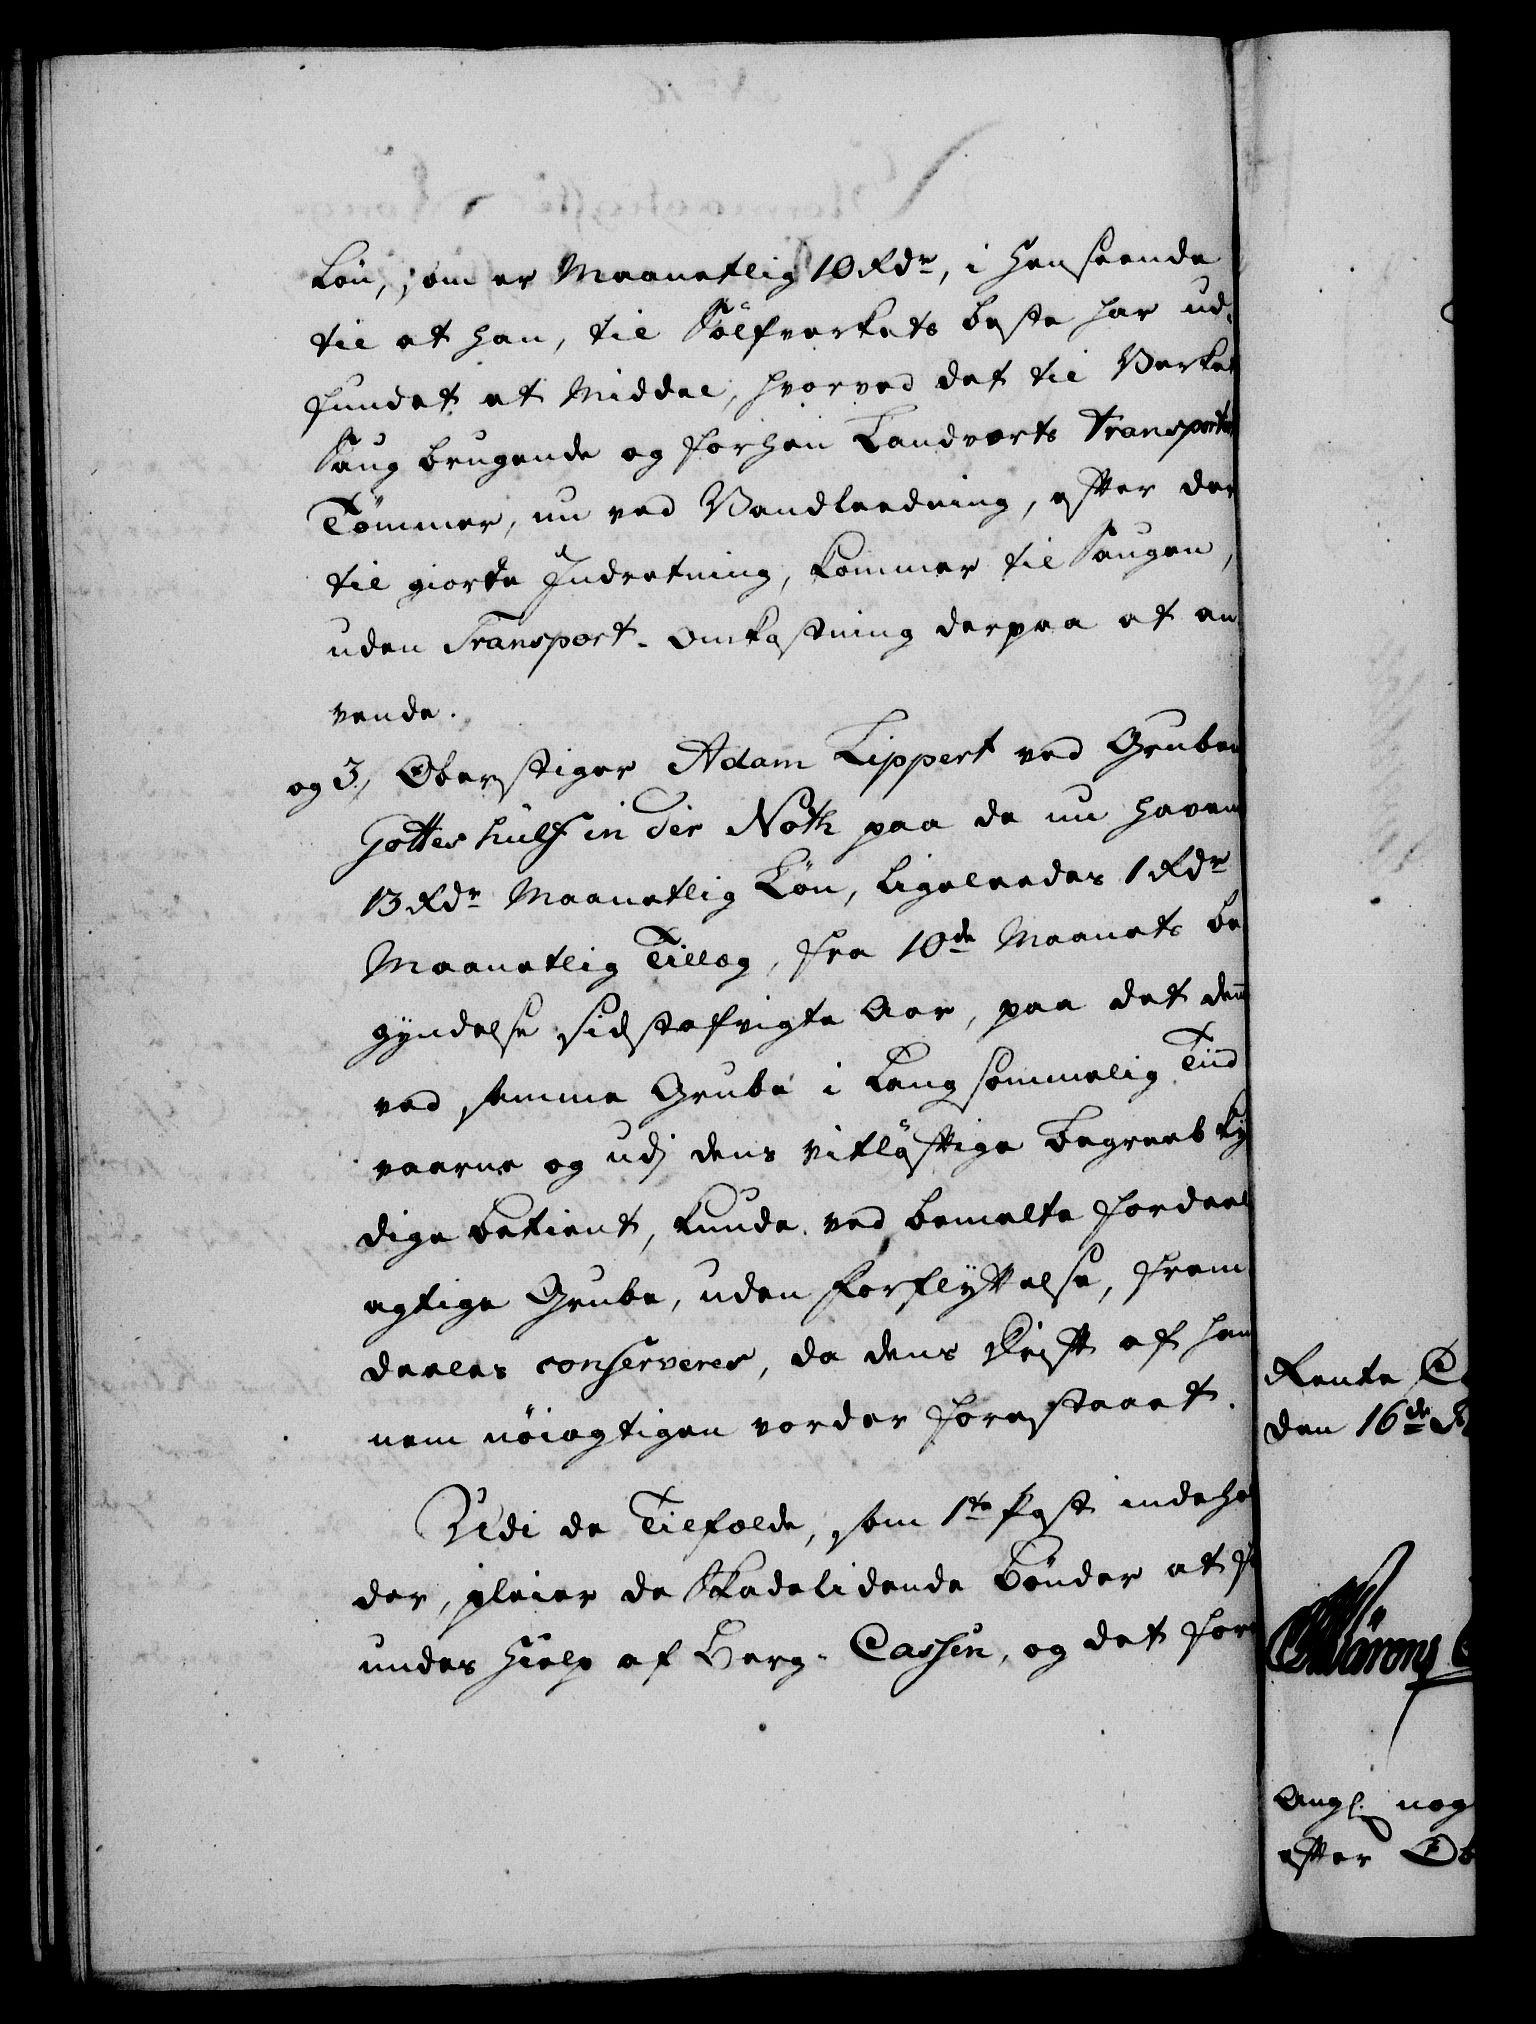 Løn, som er Maanetlig 10 Rdr, i Henseende
til at han, til Sølfverkets beste har ud-
fundet et Middel, hvorved det til Verkets
Saug brugende og forhen Landverts transporterte
Tømmer, nu ved Vandleedning, efter der
til giorte Indretning, kommer til Saugen,
uden Transport-Omkostning derpaa at an
vende.
og 3, Oberstiger Adam Lippert ved Gruben
Gottes hülf in der Noth paa de nu havende
13 Rdr Maanetlig Løn, ligeleedes 1 Rdr
Maanetlig Tillæg, fra 10de Maanets be
gyndelse sidstafvigte Aar, paa det denne
ved samme Grube i langsommelig Tiid
værne og udj dens vitløftige begreeb ky
dige betient, kunde ved bemelte fordeel
agtige Grube, uden forflyttelse, frem
deeles conserveres, da dens Drift af han
nem nøiagtigen vorder forestaaet.
Udi de Tilfælde, som 1te Post indehol
der, pleier de Skadelidende Bønder at
undes Hielp af Berg-Cassen, og det for
Rente C
den 16de
Ang: nog
efter Ob